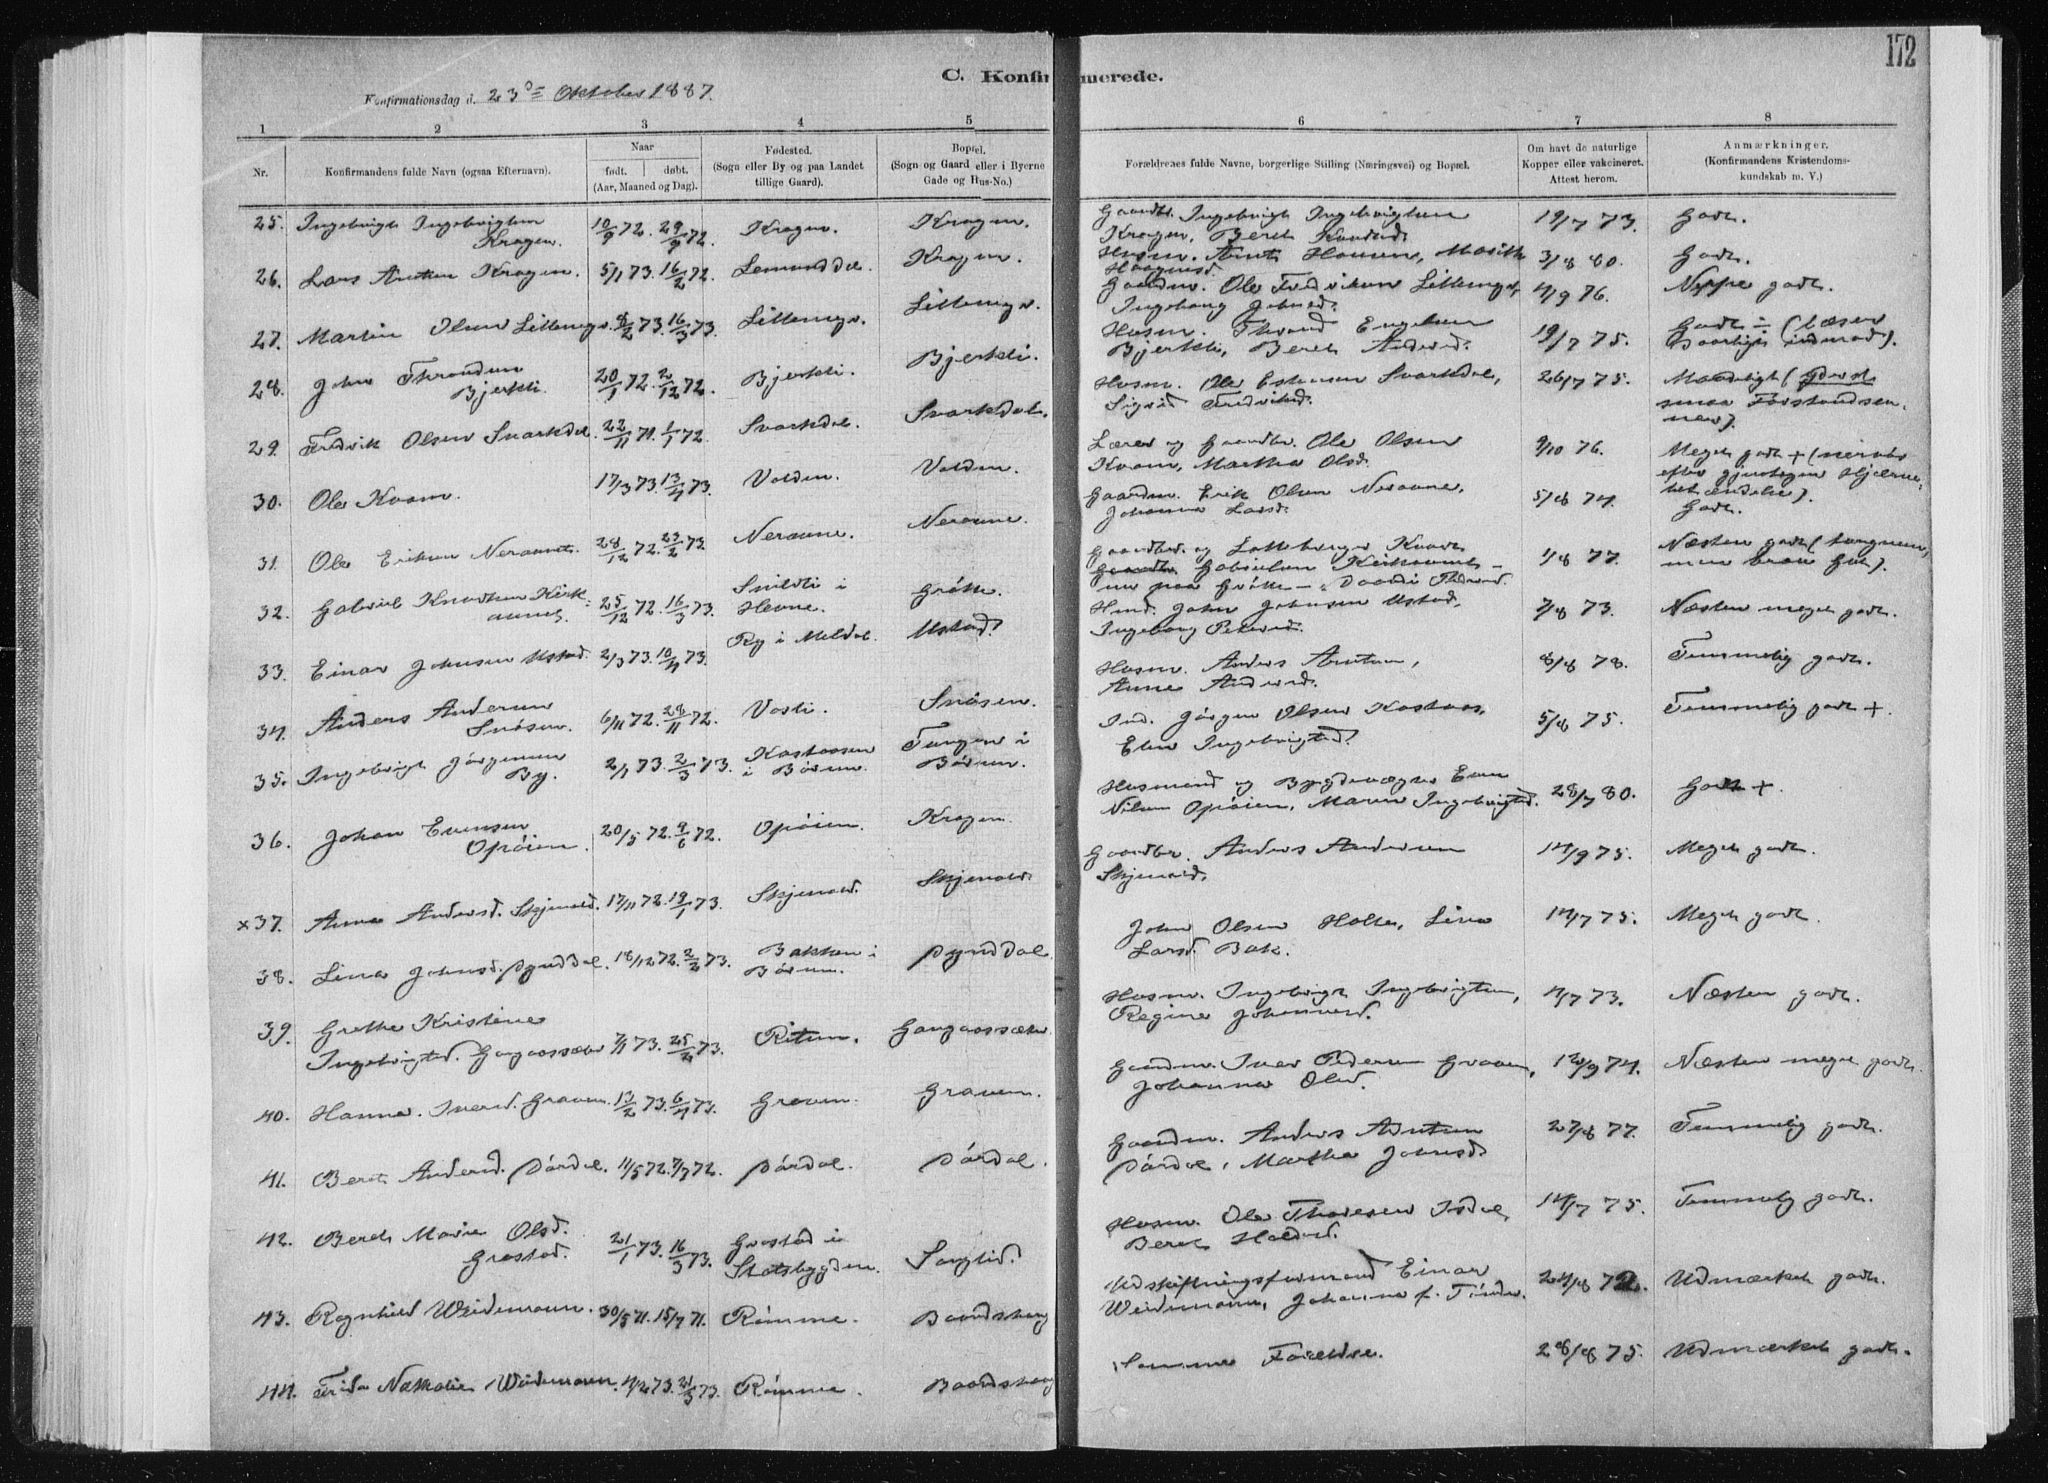 172
C. Konfirmerede.
Konfirmationsdag d. 23de Oktober 1887.
1 2 3 4 5 6 7 8
Nr.
Konfirmandens fulde Navn (ogsaa Efternavn).
Naar
født. døbt.
(Aar, Maaned og Dag).
Fødested.
(Sogn eller By og paa Landet
tillige Gaard).
Bopæl.
(Sogn og Gaard eller i Byerne
Gade og Hus-No.)
Forældrenes fulde Navne, borgerlige Stilling (Næringsvei) og Bopæl.
Om havt de naturlige
Kopper eller vakcineret.
Attest herom.
Anmærkninger.
(Konfirmandens Kristendoms-
kundskab m. V.)
25. Ingebrigt Ingebrigtsen Kragen. 10/9 72. 29/9 72. Kragen. Kragen. Gaardbr. Ingebrigt Ingebrigtsen
Kragen, Beret 19/7 73. Godt.
26. Lars Arntsen Kragen. 5/1 73. 16/2 72. Kragen. Husm. Arnt Hansen, 3/8 80. Godt.
27. Martin Olsen 8/2 73. 16/3 73. Gaardm. Ole Fredriksen
Ingeborg Johnsd. 4/9 76. Neppe godt.
28. John Throndsen
Bjerkli. 20/1 72. 2/12 72. Bjerkli. Bjerkli. Husm. Thrond Engelsen
Bjerkli, Beret Andersd. 19/7 75. Godt ÷ (læser
daarligt indenad).
29. Fredrik Olsen Svarkdal. 22/11 71. 1/1 72. Svarkdal. Svarkdal. Husm. Ole Estensen Svarkdal,
Sigrid Fredriksd. 26/7 75. Maadeligt (yderst
smaa Forstandsev-
ner).
30. Ole Kvam. 17/3 73. 13/4 73. Volden. Volden. Lærer og Gaardbr. Ole Olsen
Kvam, Martha Olsd. 9/10 76. Meget godt + (nervøs
efter gjentagen Hjærne-
betændelse).
31. Ole Eriksen 28/12 72. 23/2 73 Neraune. Neraune. Gaardm. Erik Olsen Neraune,
Johanna Larsd. 5/8 74. Godt.
32. Gabriel Knudtsen Kirk-
aune. 25/12 72. 16/3 73. Snildli i
Hevne. Grøtte. Gaardbr. og 1/8 77. Næsten godt (tungnem,
men brav Gut).
33. Einar Johnsen Ustad. 2/3 73. 10/4 73. Ry i Meldal. Ustad. John Johnsen Ustad,
Ingeborg Petersd. 7/8 73. Næsten meget godt.
34. Anders Andersen
Snøsen. 6/11 72. 28/11 72. Vosli. Snøsen. Husm. Anders Arntsen,
Anne Andersd. 8/8 78. Temmelig godt.
35. Ingebrigt Jørgensen
By. 2/1 73. 2/3 73. Kastaasen
i Børsen. Tungen i
Børsen. Ind. Jørgen Olsen Kastaas,
Elen Ingebrigtsd. 5/8 75. Temmelig godt +.
36. Johan Evensen
Opøien. 20/5 72. 9/6 72. Opøien. Kragen. Husmand og Bygdevægter Even
Nilsen Opøien, Maren Ingebrigtsd. 28/7 80. Godt +.
×37. Anna Andersd. Skjenald. 17/11 72. 19/1 73. Skjenald. Skjenald. Gaardbr. Anders Andersen
Skjenald. 14/9 75. Meget godt.
38. Lina Johnsd. 18/12 72. 2/2 73. Bakken i
Børsen. John Olsen Holte, Lina
Larsd. Bak. 14/7 75. Meget godt.
39. Grethe Kristine
Ingebrigtsd. Gangaassæter 7/1 73. 25/2 73. Gangaassæter Husm. Ingebrigt Ingebrigtsen,
Regine Johannesd. 4/7 73. Næsten godt.
40. Hanna. Iversd. Graven. 13/2 73. 6/4 73. Graven. Graven. Gaardm. Iver Pedersen Graven,
Johanna Olsd. 12/9 74. Næsten meget godt.
41. Beret Andersd. Dørdal. 11/5 72. 7/7 72. Dørdal. Dørdal. Gaardm. Anders Arntsen
Dørdal, Martha Johnsd. 27/8 77. Temmelig godt.
42. Beret Marie Olsd.
Grøstad. 21/1 73. 16/3 73. Grøstad i
Stadsbygden. Songlid. Husm. Ole Thoresen
Beret 14/7 75. Temmelig godt.
43. Ragnhild Weidemann. 30/5 71. 15/7 71. Rømme. Baardshaug Udskiftningsformand Einar
Weidemann, Johanna f. Tønder. 24/8 72. Udmærket godt.
44. Frida Nathalie Weidemann. 4/2 73. 21/3 73. Rømme. Baardshaug Samme Forældre. 28/8 75. Udmærket godt.